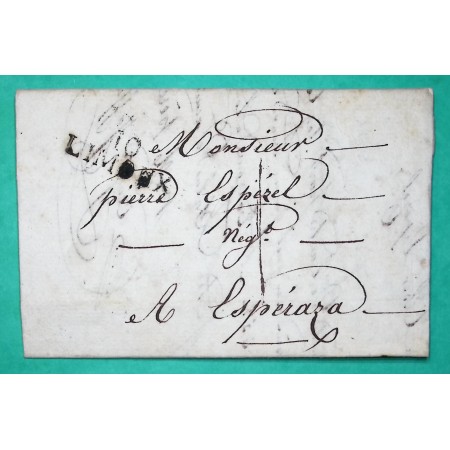 10
LIMOUX
Monsieur
pierre Espézel
Négt.
A Espéraza